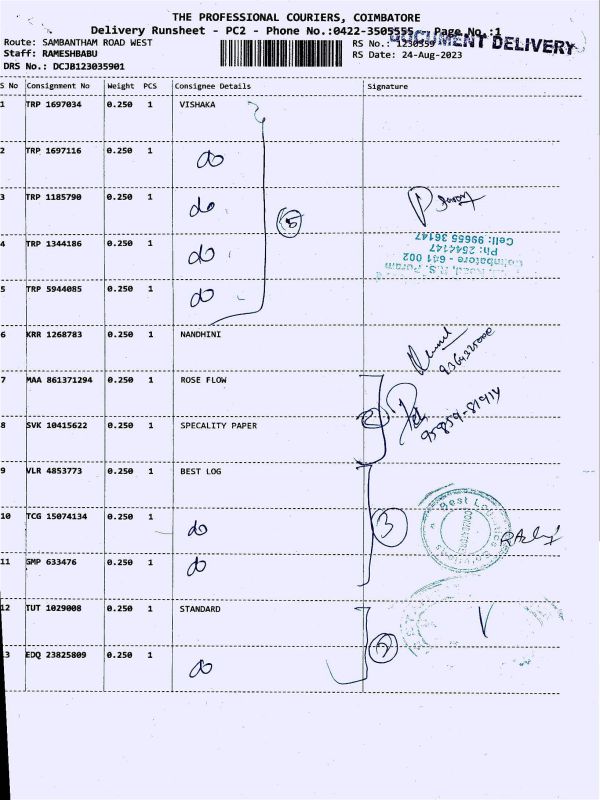 THE PROFESSIONAL COURIERS, COIMBATORE
Delivery Runsheet - PC2 - Phone No.:0422-3505555 Page No.:1
DOCUMENT DELIVERY
Route: SAMBANTHAM ROAD WEST RS No.: 1230359
Staff: RAMESHBABU RS Date: 24-Aug-2023
DRS No.: DCJB123035901
S No Consignment No Weight PCS Consignee Details Signature
1 TRP 1697034 0.250 1 VISHAKA
2 TRP 1697116 0.250 1 do
3 TRP 1185790 0.250 1 do
4 TRP 1344186 0.250 1 do
5 TRP 5944085 0.250 1 do
5
R.S. Puram
Coimbatore - 641 002
Ph: 2544147
Cell: 99655 36147
6 KRR 1268783 0.250 1 NANDHINI
7 MAA 861371294 0.250 1 ROSE FLOW
2
8 SVK 10415622 0.250 1 SPECALITY PAPER
9 VLR 4853773 0.250 1 BEST LOG
10 TCG 15074134 0.250 1 do
3
Best Log
11 SMP 633476 0.250 1 do
12 TUT 1029008 0.250 1 STANDARD
2
13 EDQ 23825809 0.250 1 do